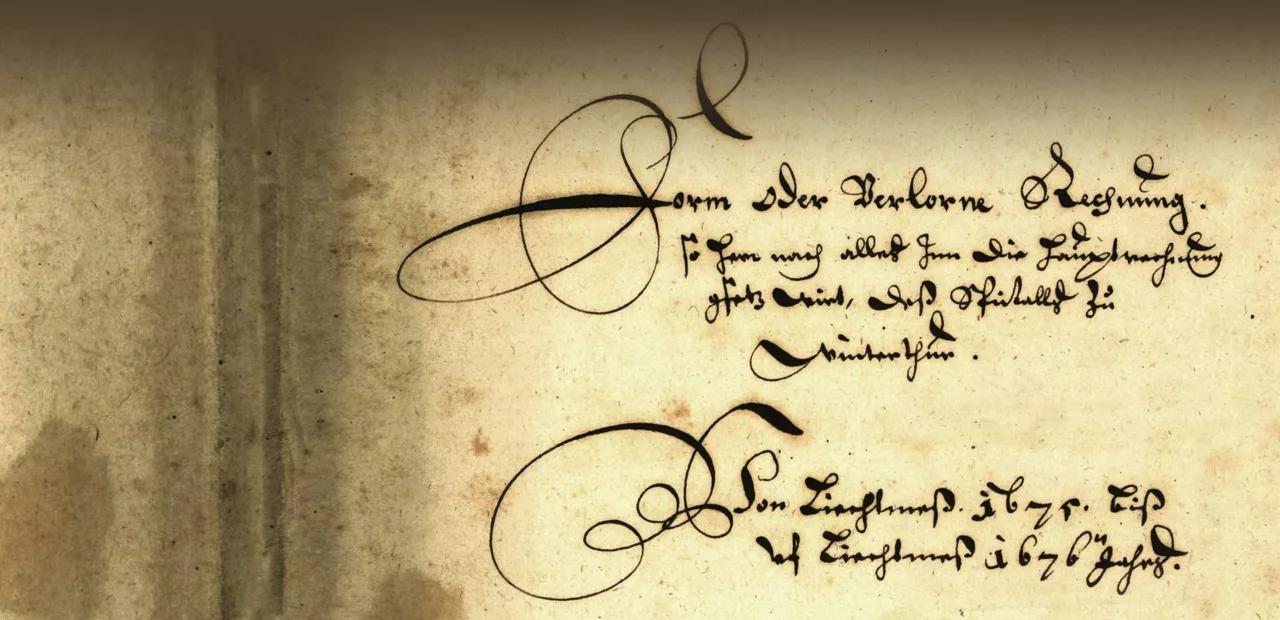 Form oder Verlorne Rechnung.
so hern nach alles Inn die Hauptrechnung
gsetz wirt, deß Spitalls zů
Winterthur.
Von Liechtmeß. 1675. biß
uf Liechtmeß 1676 Jahrs.